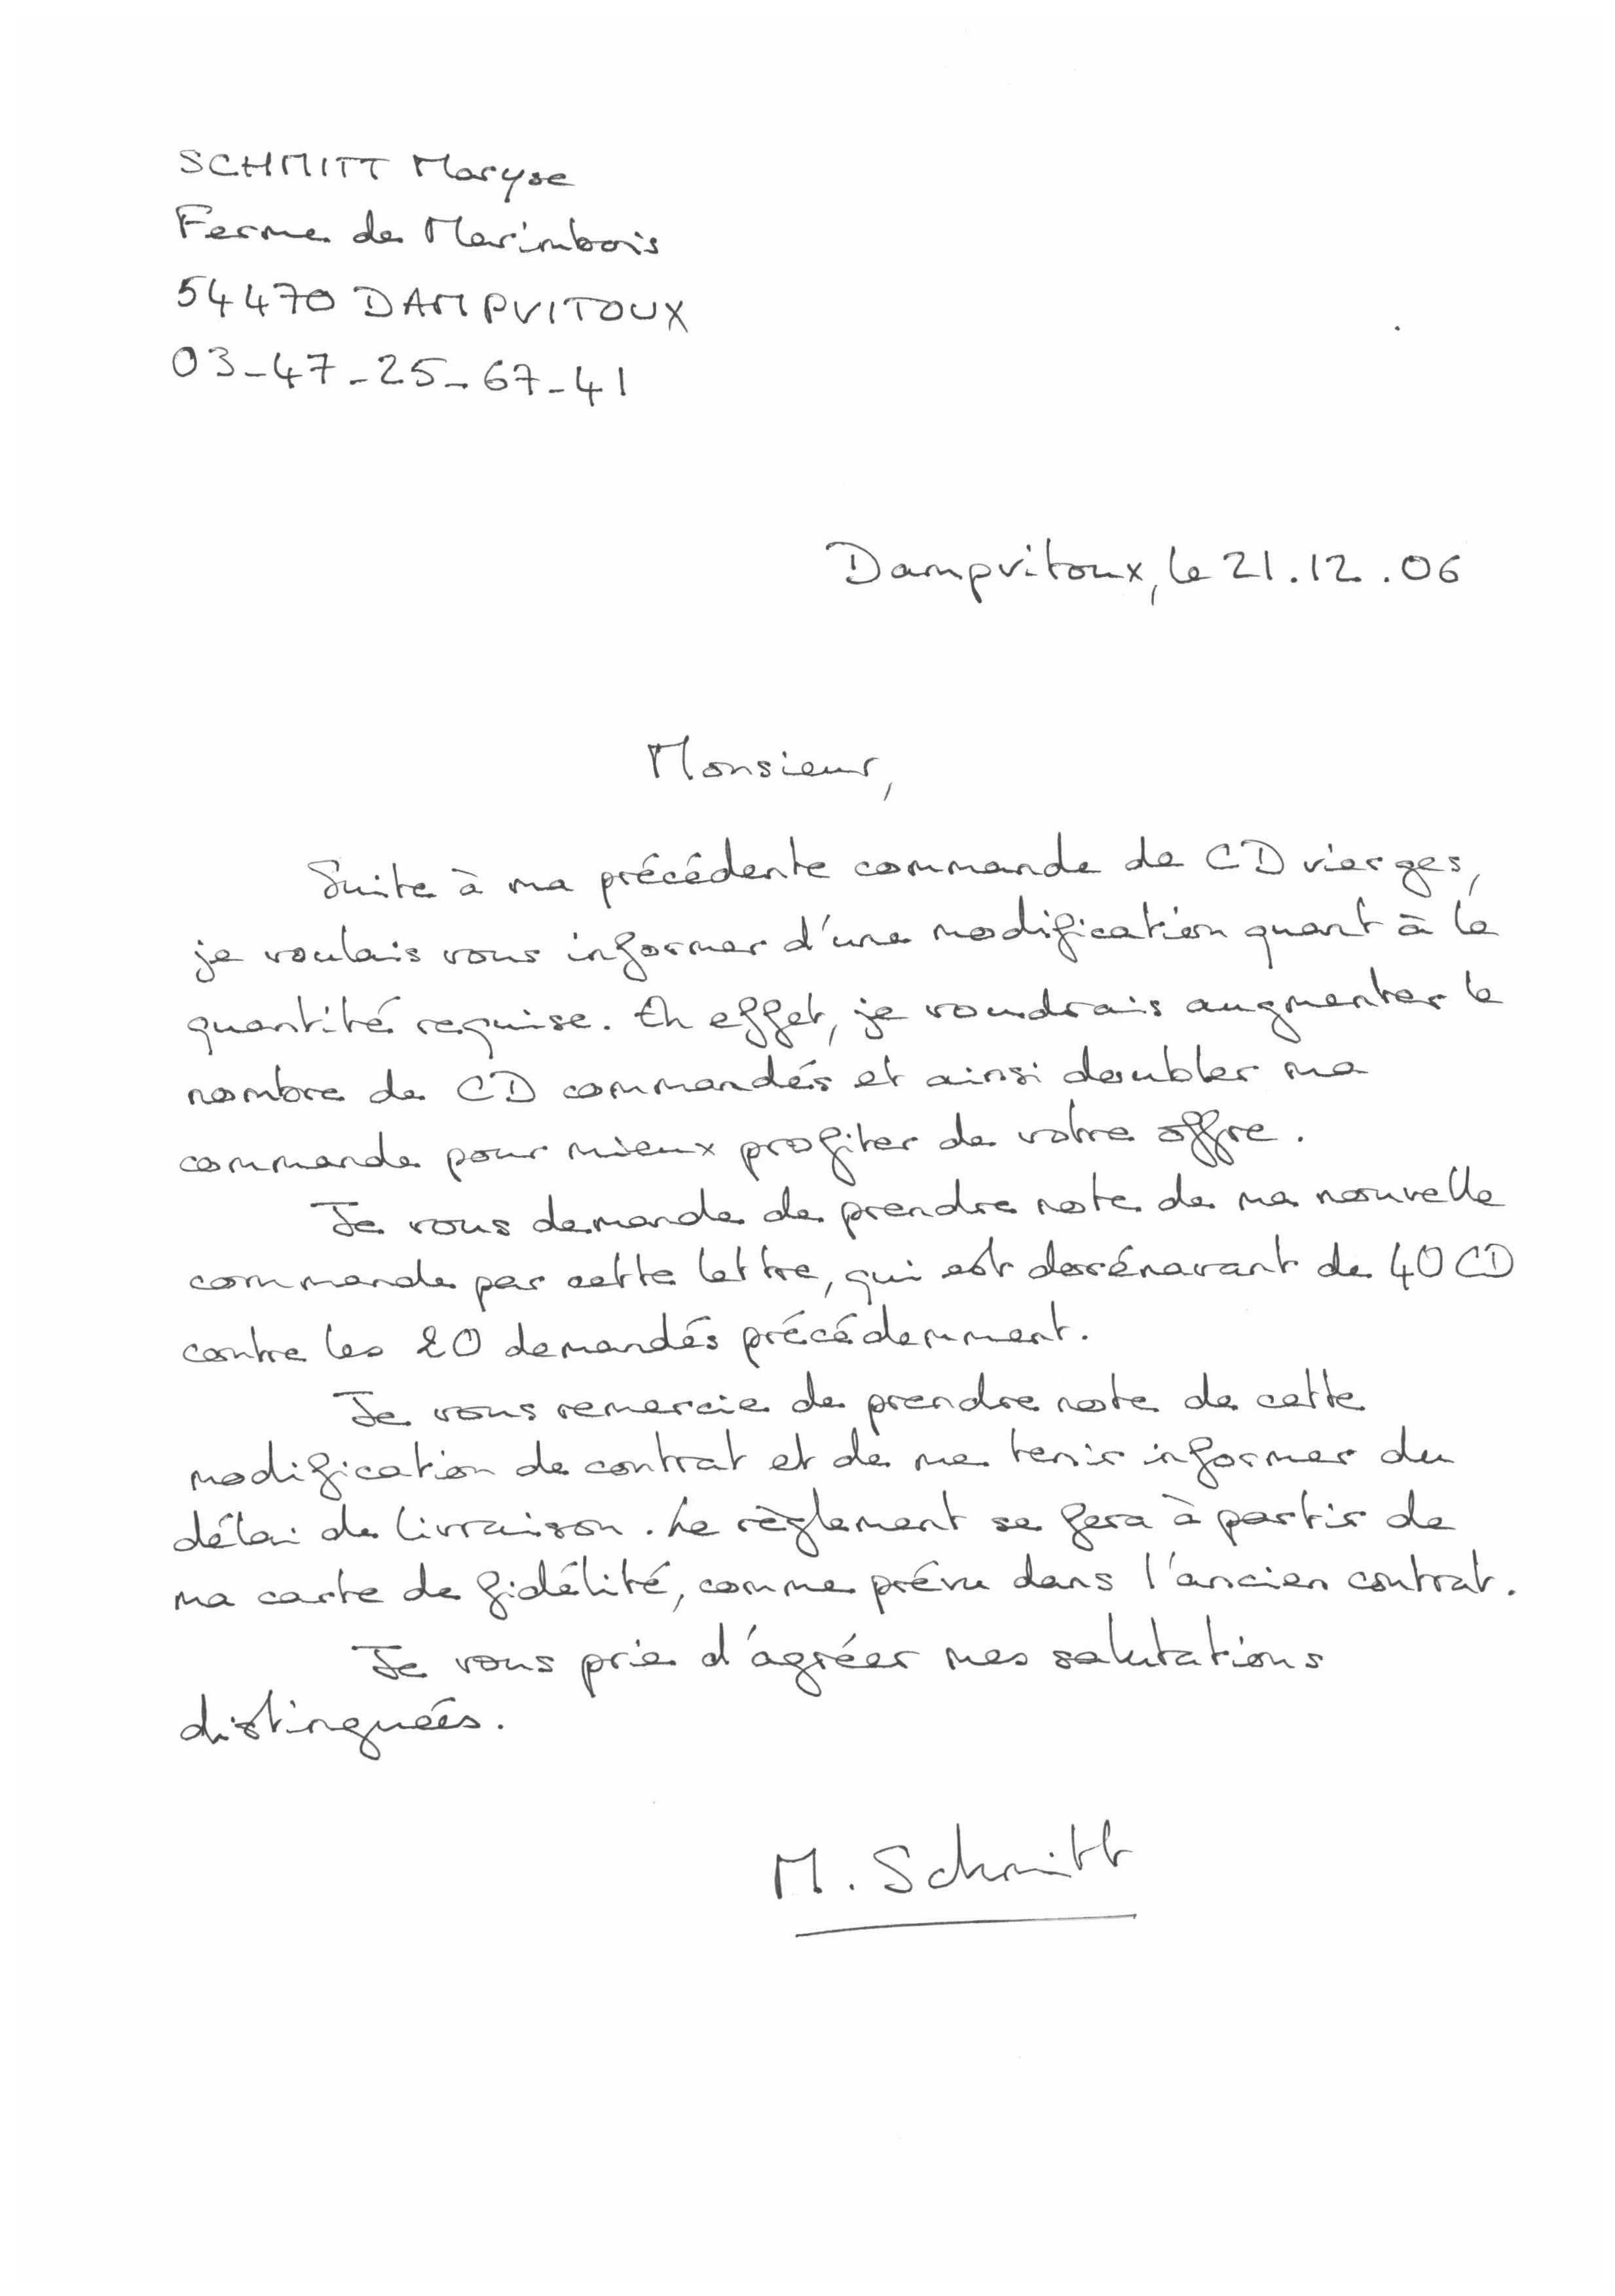 SCHMITT Maryse
Ferme de Marimbois
54470 DAMPVITOUX
03-47-25-67-41
Dampvitoux, le 21.12.06
Monsieur,
Suite à ma précédente commande de CD vierges,
je voulais vous informer d'une modification quant à la
quantité requise. En effet, je voudrais augmenter le
nombre de CD commandés et ainsi doubler ma
commande pour mieux profiter de votre offre.
Je vous demande de prendre note de ma nouvelle
commande par cette lettre, qui est dorénavant de 40 CD
contre les 20 demandés précédemment.
Je vous remercie de prendre note de cette
modification de contrat et de me tenir informer du
délai de livraison. Le règlement se fera à partir de
ma carte de fidélité, comme prévu dans l'ancien contrat.
Je vous prie d'agréer mes salutations
distinguées.
M. Schmitt